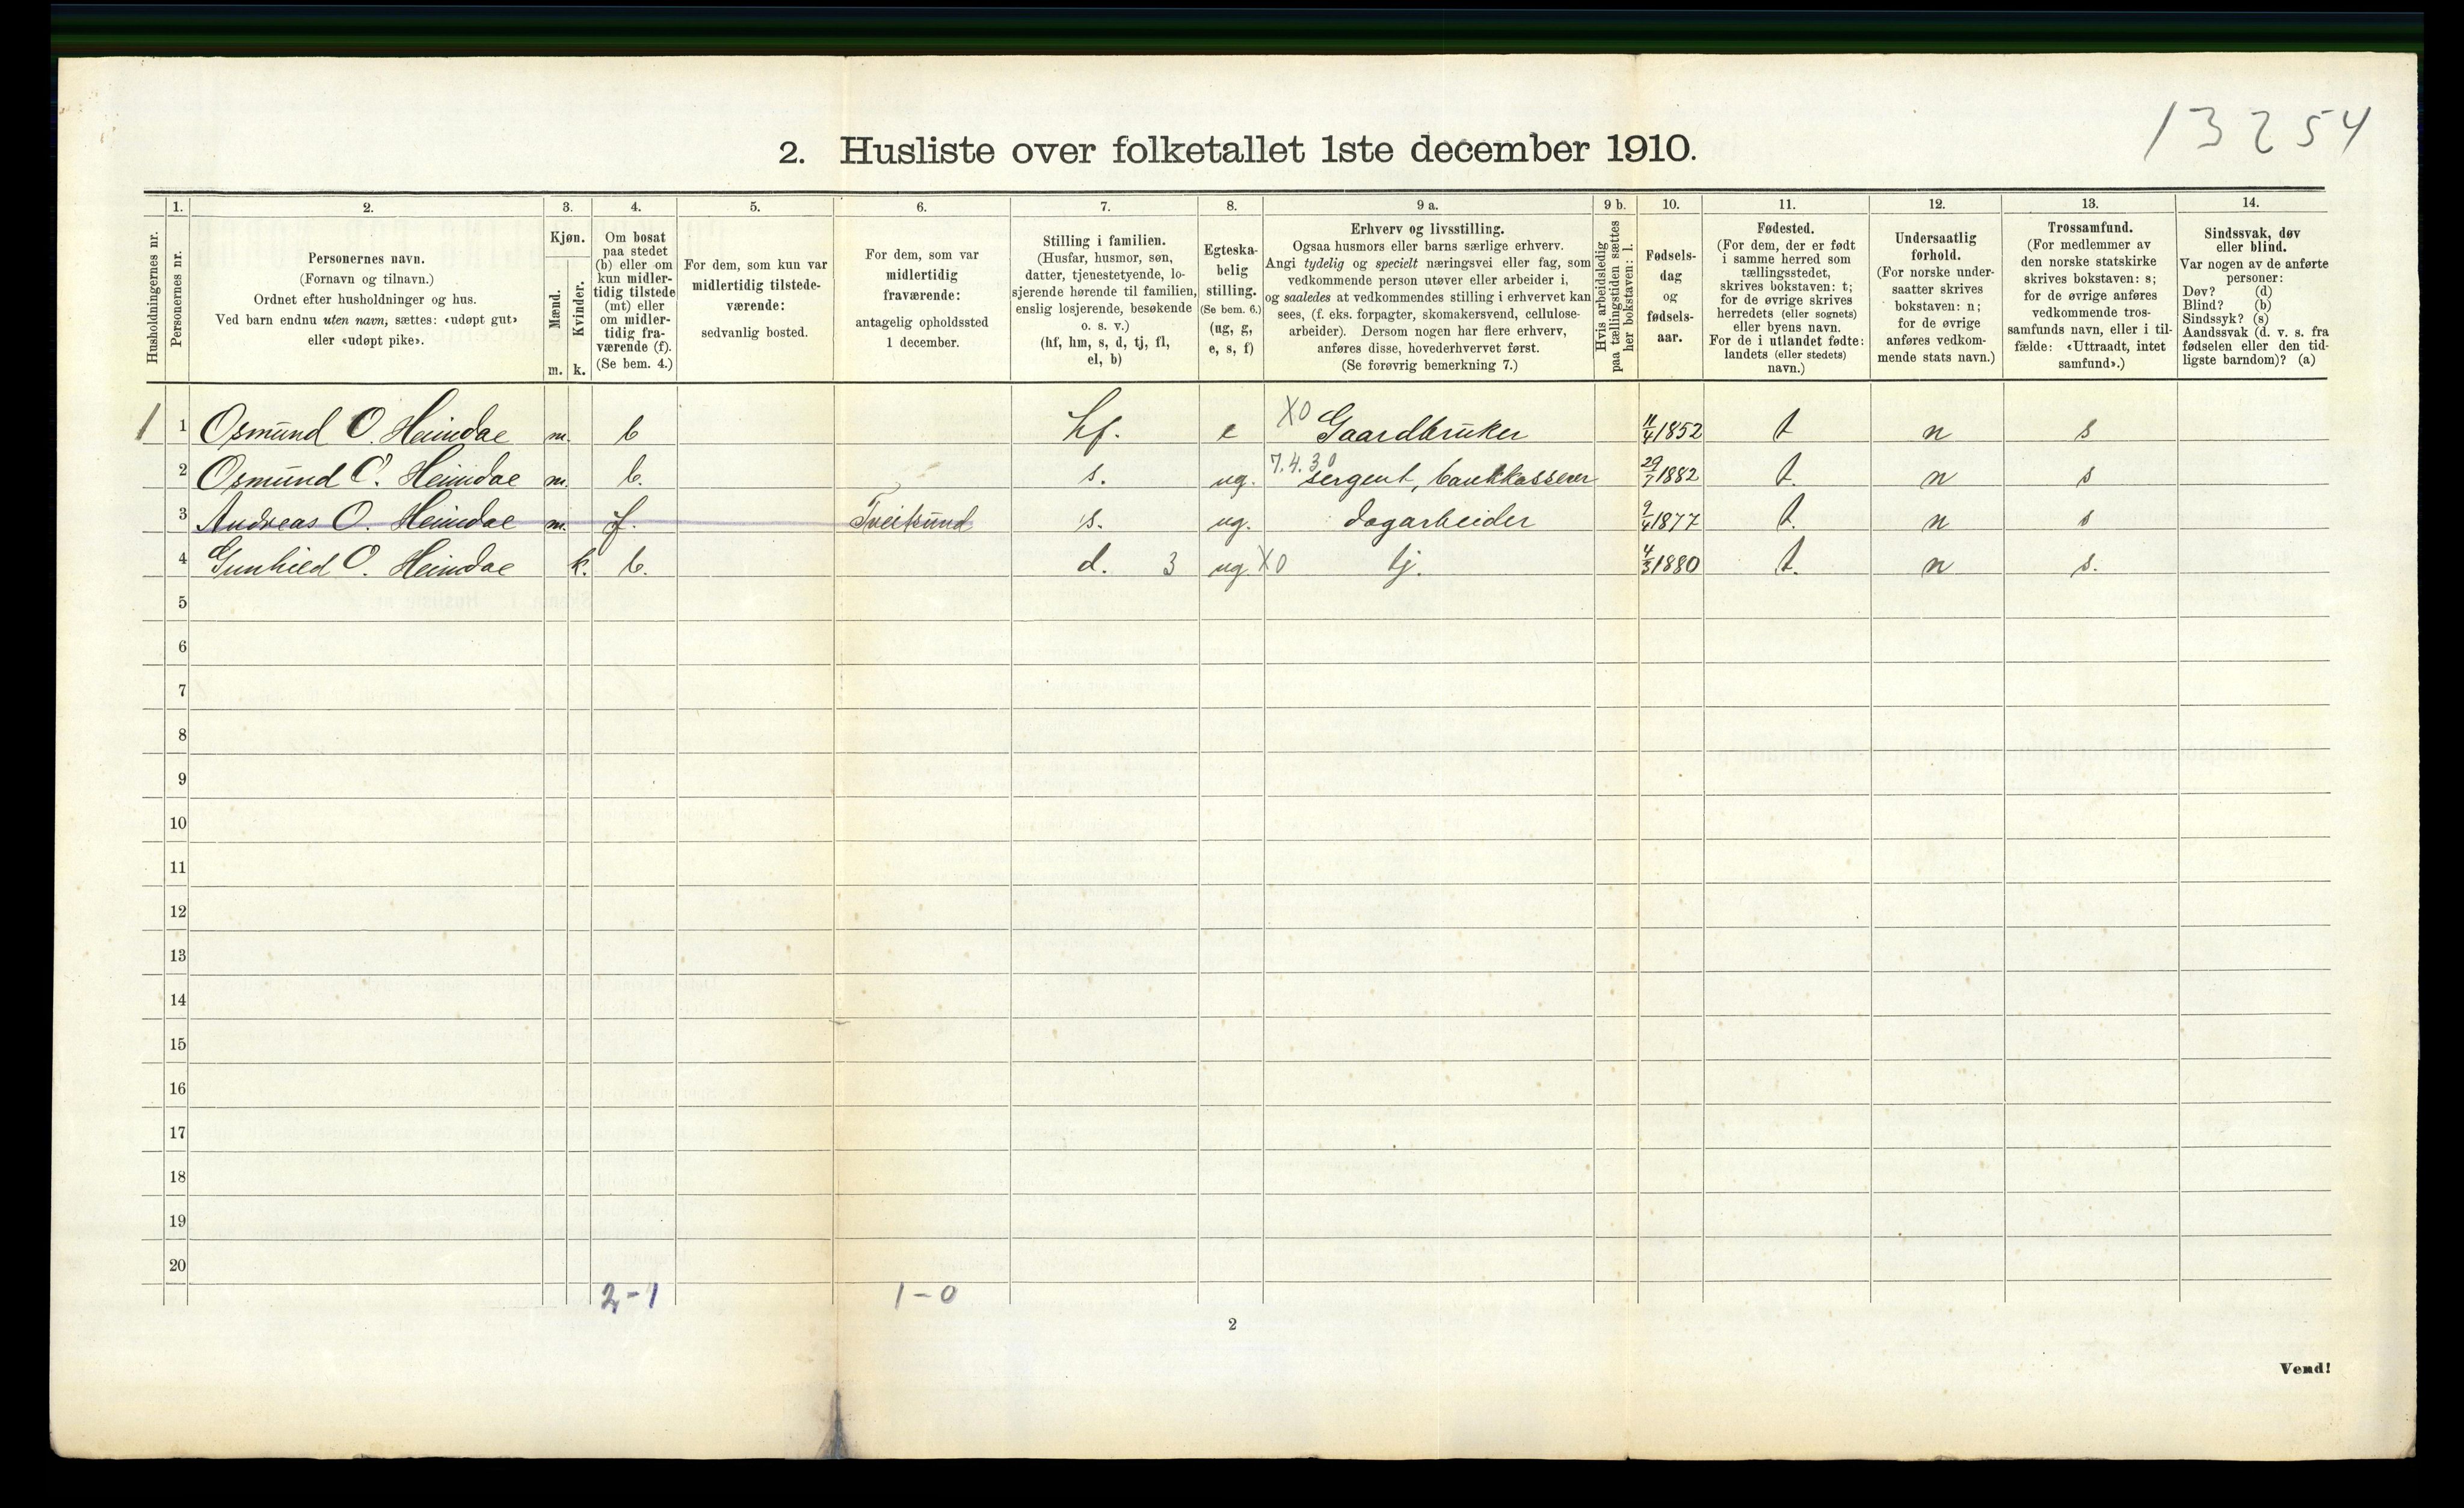 13254
2. Husliste over folketallet 1ste december 1910.
Husholdningernes nr.
1. Personernes nr.
2. Personernes navn. (Fornavn og tilnavn.) Ordnet efter husholdninger og hus. Ved barn endnu uten navn, sættes: «udøpt gut» eller «udøpt pike».
3. Kjøn. Mænd. m. Kvinder. k.
4. Om bosat paa stedet (b) eller om kun midlertidig tilstede (mt) eller om midlertidig fraværende (f). (Se bem. 4.)
5. For dem, som kun var midlertidig tilstedeværende: sedvanlig bosted.
6. For dem, som var midlertidig fraværende: antagelig opholdssted 1 december.
7. Stilling i familien. (Husfar, husmor, søn, datter, tjenestetyende, losjerende hørende til familien, enslig losjerende, besøkende o. s. v.) (hf, hm, s, d, tj, fl, el, b)
8. Egteskabelig stilling. (Se bem. 6.) (ug, g, e, s, f)
9 a. Erhverv og livsstilling. Ogsaa husmors eller barns særlige erhverv. Angi tydelig og specielt næringsvei eller fag, som vedkommende person utøver eller arbeider i, og saaledes at vedkommendes stilling i erhvervet kan sees, (f. eks. forpagter, skomakersvend, cellulosearbeider). Dersom nogen har flere erhverv, anføres disse, hovederhvervet først. (Se forøvrig bemerkning 7.)
9 b. Hvis arbeidsledig paa tællingstiden sættes her bokstaven: l.
10. Fødselsdag og fødselsaar.
11. Fødested. (For dem, der er født i samme herred som tællingsstedet, skrives bokstaven: t; for de øvrige skrives herredets (eller sognets) eller byens navn. For de i utlandet fødte: landets (eller stedets) navn.)
12. Undersaatlig forhold. (For norske undersaatter skrives bokstaven: n; for de øvrige anføres vedkommende stats navn.)
13. Trossamfund. (For medlemmer av den norske statskirke skrives bokstaven: s; for de øvrige anføres vedkommende trossamfunds navn, eller i tilfælde: «Uttraadt, intet samfund».)
14. Sindssvak, døv eller blind. Var nogen av de anførte personer: Døv? (d) Blind? (b) Sindssyk? (s) Aandssvak (d. v. s. fra fødselen eller den tidligste barndom)? (a)
1 1 Osmund O. Heimdae m. b hf. e X0 Gaardbruker 11/4 1852 t n s
2 Osmund O. Heimdae m. b. s. ug. 7.4.30 sergent, bankkasserer 29/7 1882 t. n s
3 Andreas O. Heimdae m. f. Tveitsund s. ug. dagarbeider 9/4 1877 t. n s
4 Gunhild O. Heimdae k. b. d. 3 ug. X0 tj. 4/3 1880 t. n s.
5
6
7
8
9
10
11
12
13
14
15
16
17
18
19
20
2-1 1-0
2
Vend!